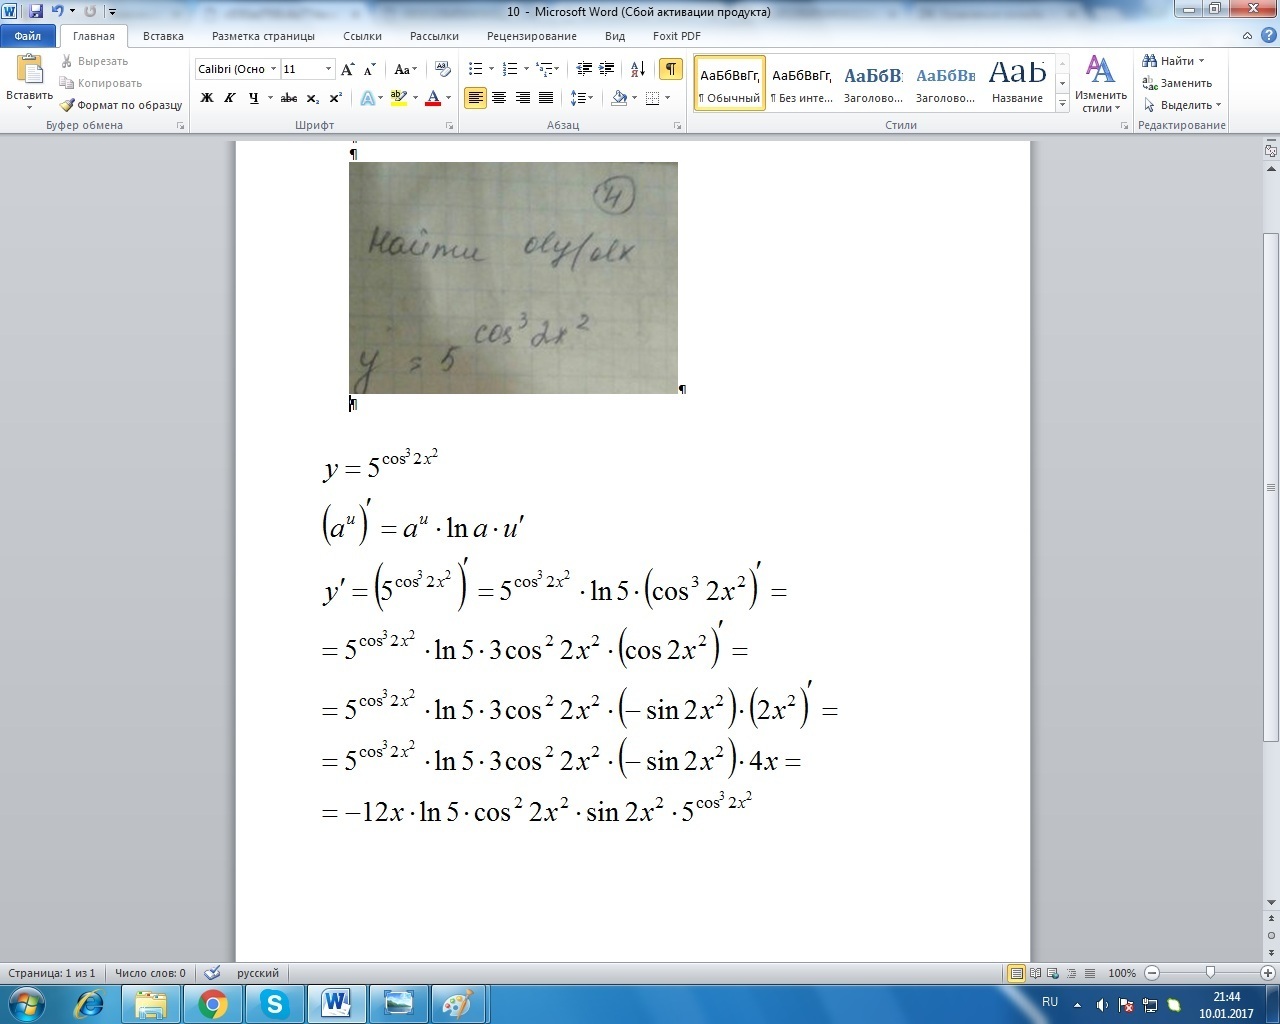 10 - Microsoft Word (Сбой активации продукта)
Файл Главная Вставка Разметка страницы Ссылки Рассылки Рецензирование Вид Foxit PDF
Вставить
Вырезать
Копировать
Формат по образцу
Буфер обмена
Calibri (Осно 11
Ж К Ч abc x₂ x²
Шрифт
Абзац
АаБбВвГг, АаБбВвГг, АаБбВ: АаБбВв АаБ
¶ Обычный ¶ Без инте... Заголово... Заголово... Название
Стили
Изменить стили
Найти
Заменить
Выделить
Редактирование
4
Найти dy/dx
y = 5^(cos³ 2x²)
y = 5^(cos³ 2x²)
(a^u)′ = a^u · ln a · u′
y′ = (5^(cos³ 2x²))′ = 5^(cos³ 2x²) · ln 5 · (cos³ 2x²)′ =
= 5^(cos³ 2x²) · ln 5 · 3 cos² 2x² · (cos 2x²)′ =
= 5^(cos³ 2x²) · ln 5 · 3 cos² 2x² · (− sin 2x²) · (2x²)′ =
= 5^(cos³ 2x²) · ln 5 · 3 cos² 2x² · (− sin 2x²) · 4x =
= −12x · ln 5 · cos² 2x² · sin 2x² · 5^(cos³ 2x²)
Страница: 1 из 1 Число слов: 0 русский 100%
RU 21:44
10.01.2017